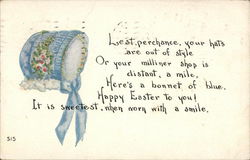 Lest, perchance, your hats
are out of style
Or your milliner shop is
distant, a mile,
Here's a bonnet of blue.
Happy Easter to you!
It is sweetest, when worn with a smile.
515